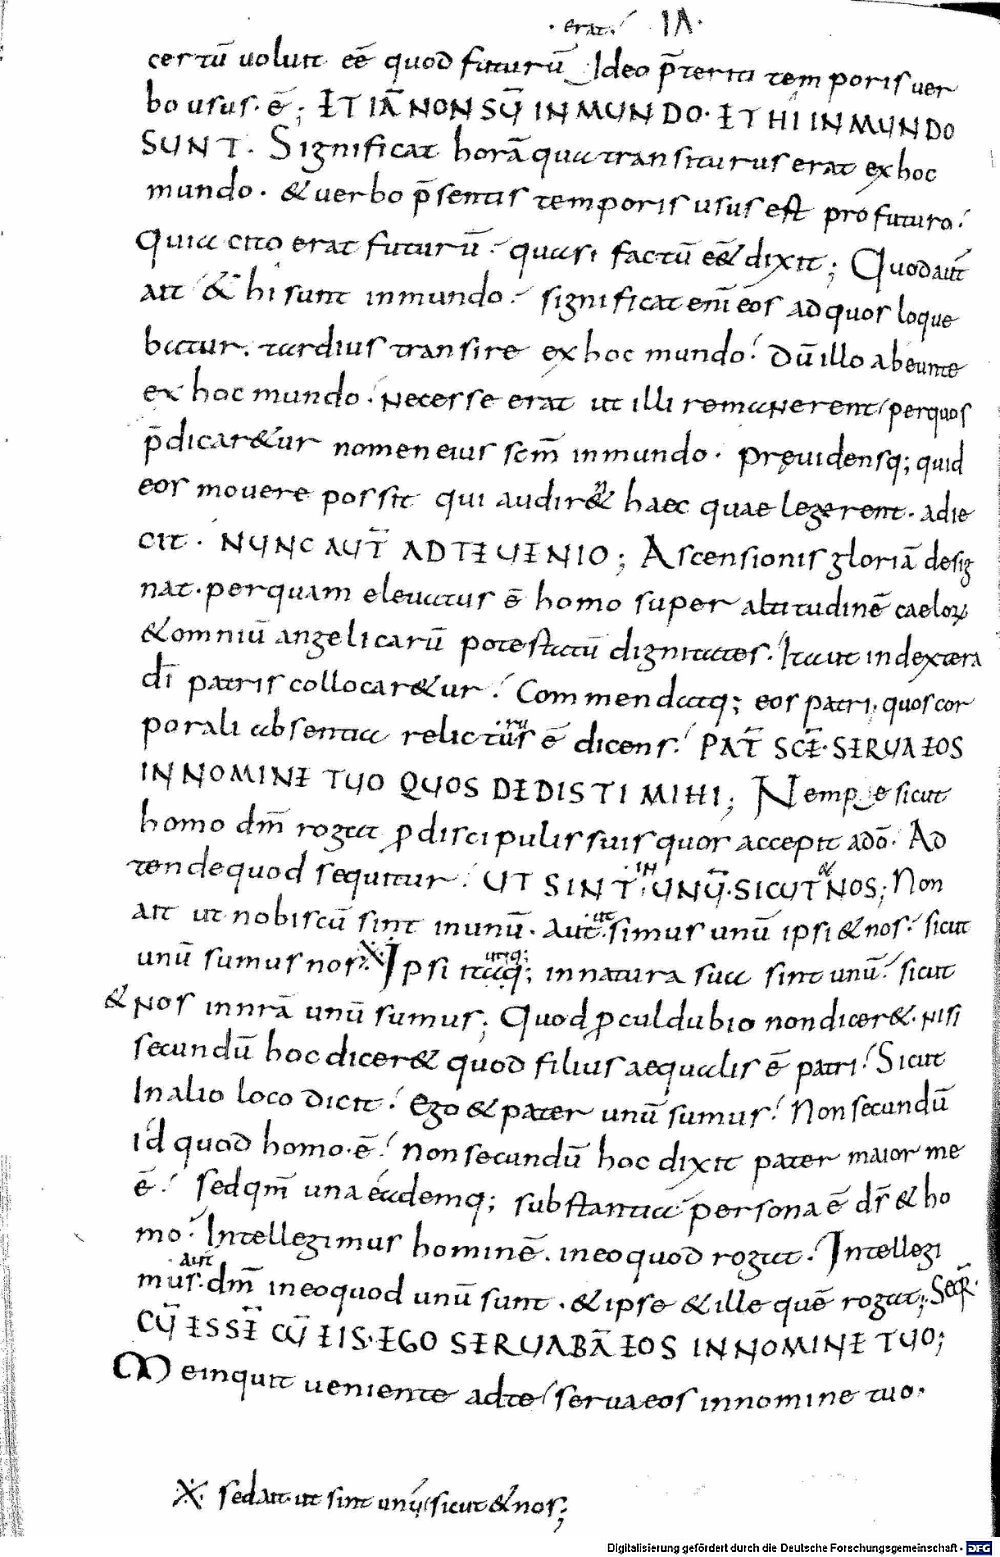 · erat ·
certū uoluit eē quod futurū Ideo p̄teriti temporis uer
bo usus · ē ; ET IĀ NON SŪ IN MUNDO · ET HI IN MUNDO
SUNT · Significat horā qua transiturus erat ex hoc
mundo · & uerbo p̄sentis temporis usus est pro futuro ·
Quia cito erat futurū quasi factū eē & dixit ; Quod aut̄
ait & hi sunt in mundo significat eni̅ eos ad quos loque
batur · tardius transire ex hoc mundo Dū illo abeunte
ex hoc mundo · necesse erat ut illi remanerent per quos
p̄dicar&ur nomen eius scm̄ in mundo · Pręuidensq; quid
eos mouere possit qui audir& haec quae legerent · adie
cit · NUNC AUT̄ AD TE UENIO ; Ascensionis gloriā desig
nat · per quam eleuatus ē homo super altitudinē caeloꝝ
& omniū angelicarū potestatū dignitates · Ita ut in dextera
dī patris collocar&ur Commendatq; eos patri · quos cor
porali absentia relictu·ru·s ē dicens PAT̄ SCĒ · SERUA EOS
IN NOMINE TUO QUOS DEDISTI MIHI ; Nempe sicut
homo dm̄ rogat ꝓ discipulis suis quos accepit a dō · Ad
tende quod sequitur UT SINT · IN · UNŪ · SICUT & NOS ; Non
ait ut nobiscū sint in unū · aut · ut · simus unū ipsi & nos sicut
unū sumus nos · Ipsi itaq; in natura sua sint unū sicut
& nos in nr̄a unū sumus ; Quod ꝓculdubio non dicer& · nisi
secundū hoc dicer& quod filius aequalis ē patri Sicut
In alio loco dicit Ego & pater unū sumus Non secundū
id quod homo · ē non secundū hoc dixit pater maior me
ē sed qm̄ una eademq; substantia persona ē dr̄ & ho
mo Intellegimus hominē · in eo quod rogat · Intellegi
mus · aut̄ dm̄ in eo quod unū sunt · & ipse & ille quē rogat ; Seqr̄
CŪ ESSĒ CŪ EIS · EGO SERUABĀ EOS IN NOMINE TUO ;
Me inquit ueniente ad te serua eos in nomine tuo ·
sed ait · ut sint unū sicut & nos ;
Digitalisierung gefördert durch die Deutsche Forschungsgemeinschaft · DFG